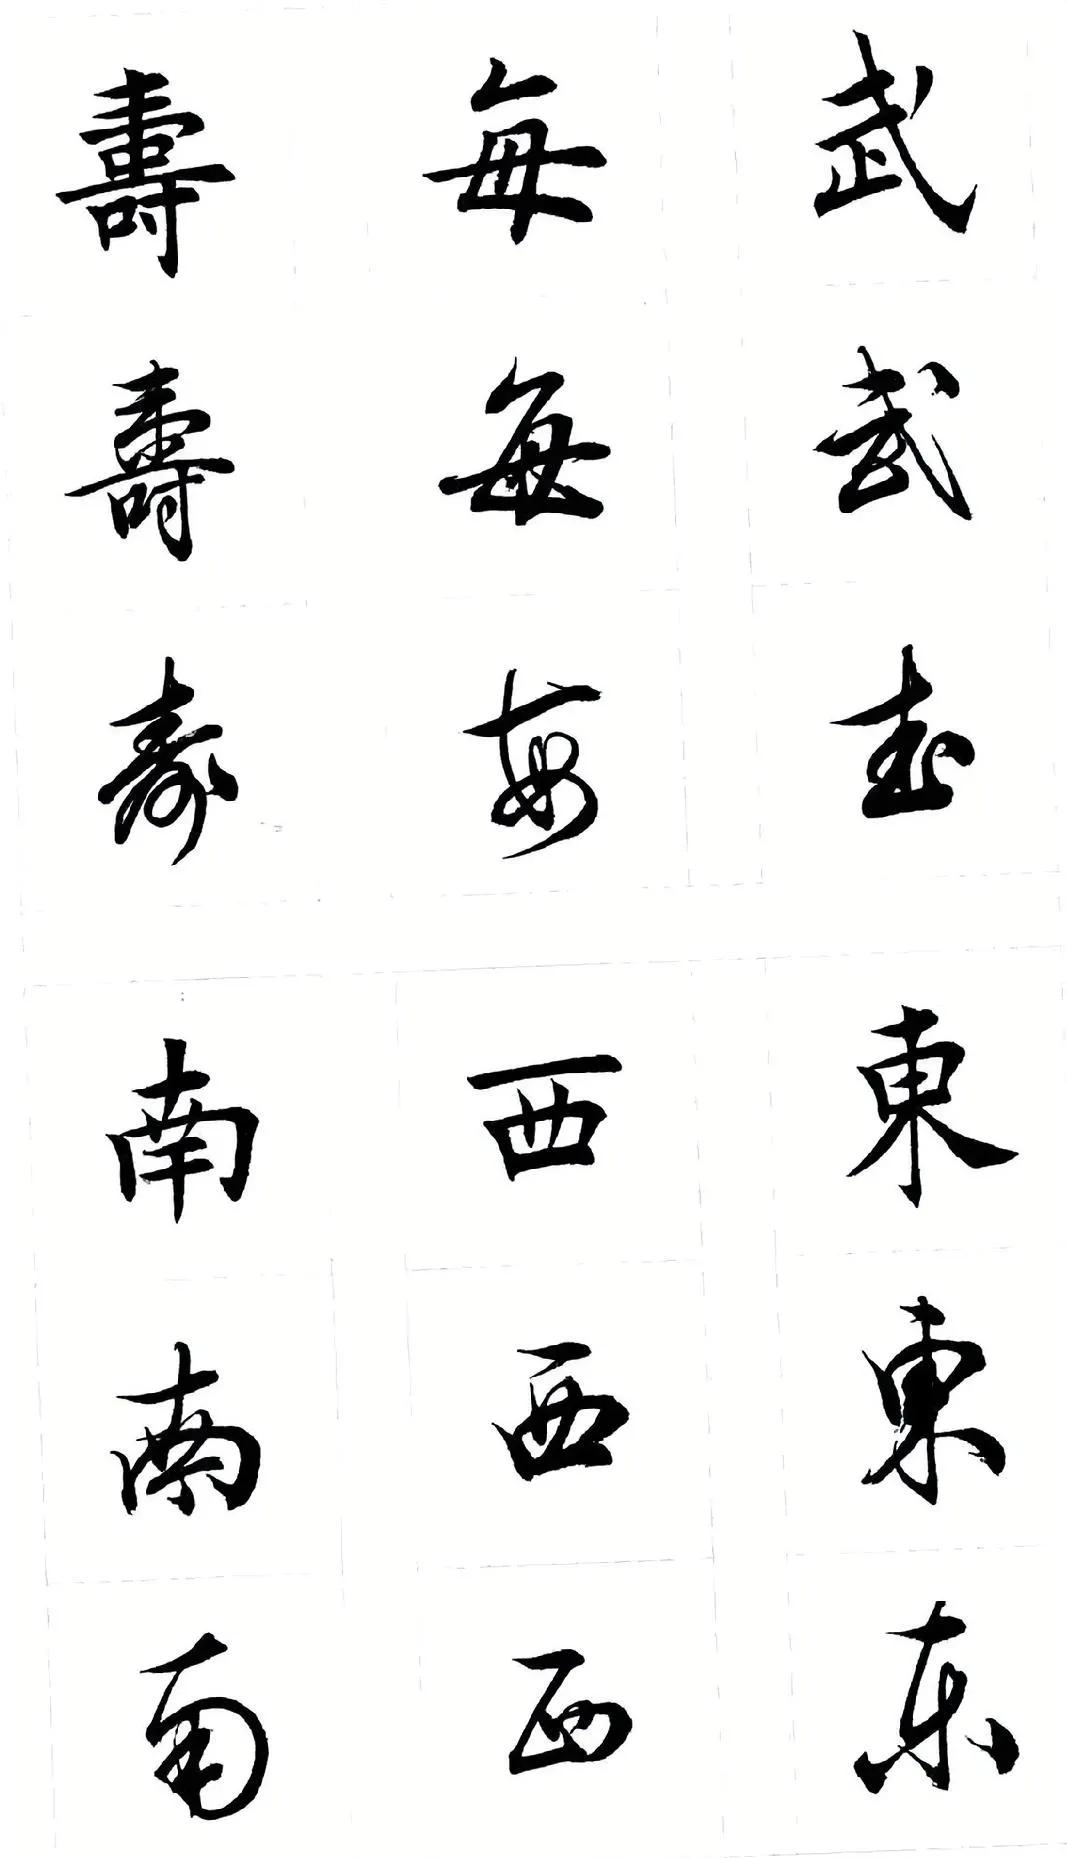 武 每 壽
武 每 壽
武 每 壽
東 西 南
東 西 南
东 西 南